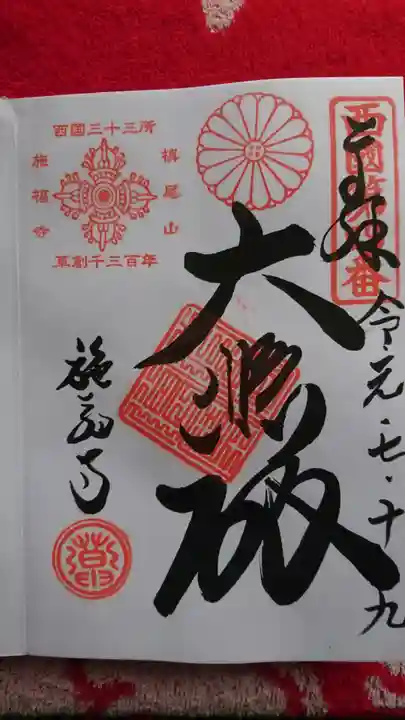 西國第四番
奉拝
令元・七・十九
大悲殿
西国三十三所
槇尾山
施福寺
草創千三百年
施福寺